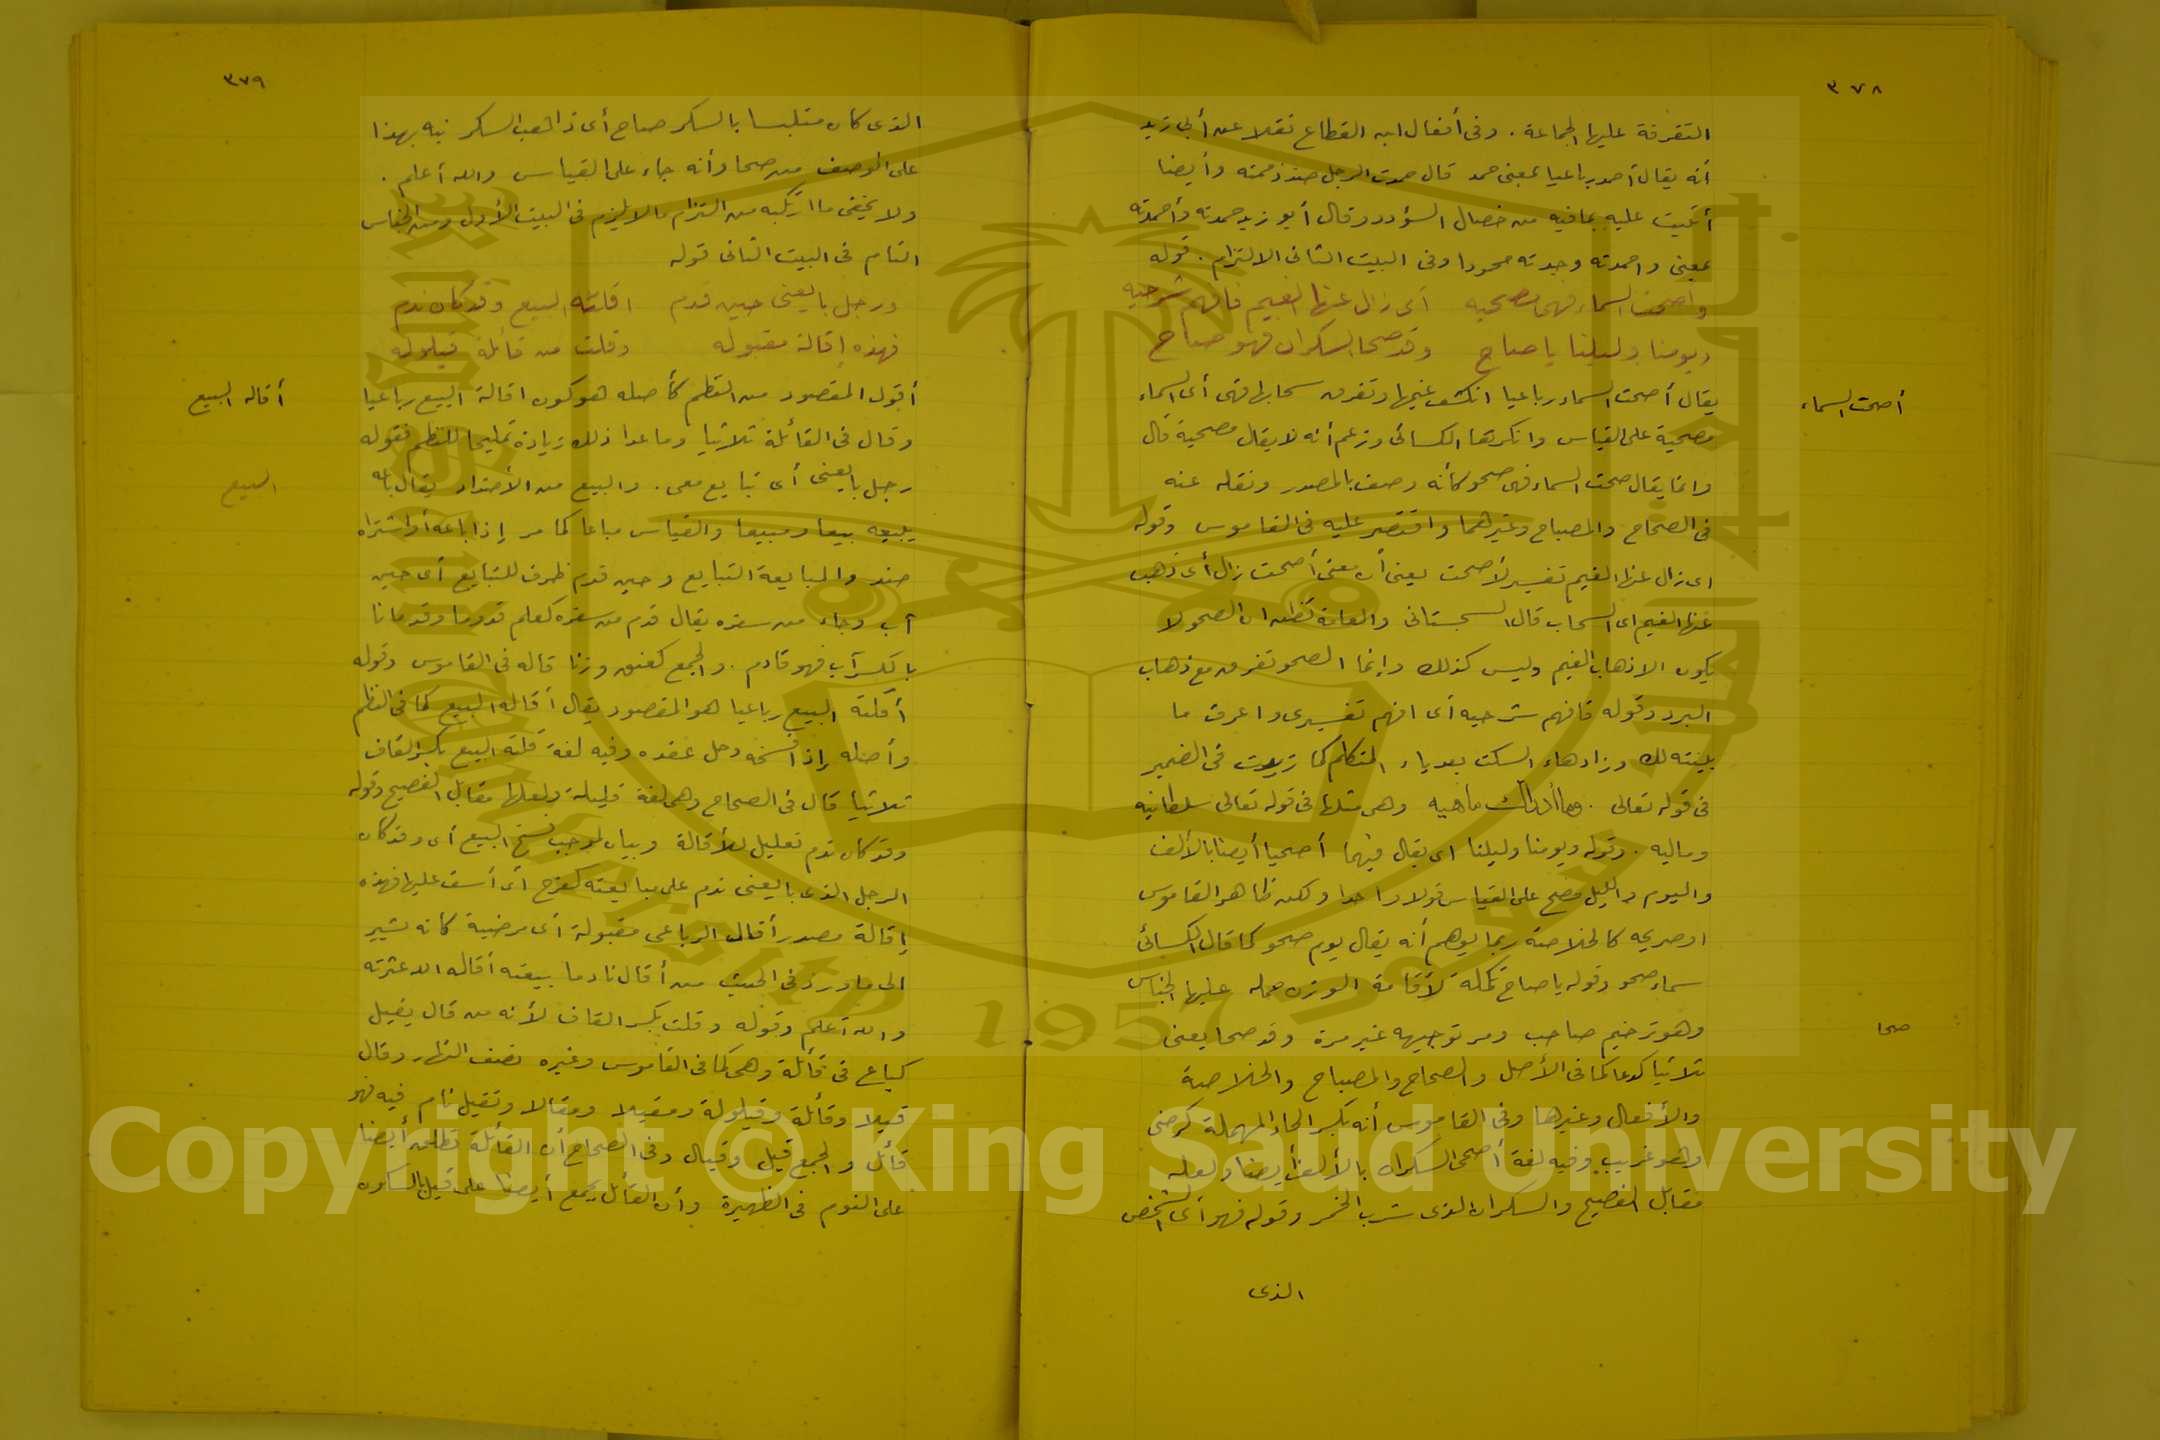 ٣٧٨
التفرقة عليها الجماعة . وفى أفعال ابن القطاع نقلا عن أبى زيد
أنه يقال أحمد رباعيا بمعنى حمد قال حمدت الرجل ضد ذممته وأيضا
أثنيت عليه بما فيه من خصال السؤدد وقال أبو زيد حمدته وأحمدته
بمعنى واحمدته وجدته محمودا وفى البيت الثانى الالتزام . قوله
وأصحت السماء فهى مصحيه أى زال عنها الغيم فافهم شرحيه
ويومنا وليلنا يا صاح وقد صحا السكران فهو صاح
أصحت السماء
يقال أصحت السماء رباعيا انكشف غيمها وتفرق سحابها فهى أى السماء
مصحية على القياس وانكرها الكسائى وزعم أنه لا يقال مصحية قال
وانما يقال صحت السماء فهى صحو كأنه وصف بالمصدر ونقله عنه
فى الصحاح والمصباح وغيرهما واقتصر عليه فى القاموس وقوله
اى زال عنها الغيم تفسير لأصحت يعنى أن معنى أصحت زال أى ذهب
عنها الغيم اى السحاب قال السجستانى والعامة تظن ان الصحو لا
يكون الا ذهاب الغيم وليس كذلك وإنما الصحو تفرق مع ذهاب
البرد وقوله فافهم شرحيه أى افهم تفسيرى واعرف ما
بينته لك وزاد هاء السكت بعد ياء المتكلم كما زيدت فى الضمير
فى قوله تعالى . وما أدراك ما هيه وهى مثلها فى قوله تعالى سلطانيه
وماليه . وقوله ويومنا وليلنا اى يقال فيهما أصحيا أيضا بالألف
واليوم والليل مصح على القياس قولا واحدا ولكن ظاهر القاموس
او صريحه كالخلاصة ربما يوهم أنه يقال يوم صحو كما قال الكسائى
سماء صحو وقوله يا صاح تكملة لاقامة الوزن حمله عليها الجناس
صحا
وهو ترخيم صاحب ومر توجيهه غير مرة وقد صحا يعنى
ثلاثيا كدعا كما فى الأصل والصحاح والمصباح والخلاصة
والأفعال وغيرها وفى القاموس أنه بكسر الحاء المهملة كرضى
وهو غريب وفيه لغة أصحى السكران بالألف أيضا ولعله
مقابل الفصيح والسكران الذى شرب الخمر وقوله فهو أى الشخص
الذى
٣٧٩
الذى كان متلبسا بالسكر صاح أى ذاهب السكر نبه بهذا
على الوصف من صحا وأنه جاء على القياس والله أعلم .
ولا يخفى ما ارتكبه من التزام ما لا يلزم فى البيت الأول ومن الجناس
التام فى البيت الثانى قوله
ورجل بايعنى حين قدم اقلته البيع وقد كان ندم
فهذه إقالة مقبوله وقلت من قائلة قيلوله
أقاله البيع
أقول المقصود من النظم كأصله هو كون اقالة البيع رباعيا
وقال فى القائلة ثلاثيا وما عدا ذلك زيادة تمليحا للنظم فقوله
البيع
رجل بايعنى أى تبايع معى . والبيع من الأضداد يقال باعه
يبيعه بيعا ومبيعا والقياس مباعا كما مر إذا باعه أو اشتراه
ضد والمبايعة التبايع وحين قدم ظرف للتبايع أى حين
آب وجاء من سفره يقال قدم من سفره كعلم قدوما وقدمانا
بالكسر آب فهو قادم . والجمع كعنق وزنا قاله فى القاموس وقوله
أقلته البيع رباعيا هو المقصود يقال أقاله البيع كما فى النظم
وأصله إذا فسخه وحل عقده وفيه لغة قلته البيع بكسر القاف
ثلاثيا قال فى الصحاح وهى لغة قليلة ولعلها مقابل الفصيح وقوله
وقد كان ندم تعليل للأقالة وبيان لموجب فسخ البيع أى وقد كان
الرجل الذى بايعنى ندم على مبايعته كفرح أى أسف عليها فهذه
إقالة مصدر أقال الرباعى مقبولة أى مرضية كانه يشير
الى ما ورد فى الحديث من أقال نادما بيعته أقاله الله عثرته
والله أعلم وقوله وقلت بكسر القاف لأنه من قال يقيل
كباع فى قائلة وهى كما فى القاموس وغيره نصف النهار وقال
قيلا وقائلة وقيلولة ومقيلا ومقالا وتقيل نام فيه فهو
قائل والجمع قيل وقيال وفى الصحاح أن القائلة تطلق أيضا
على النوم فى الظهيرة وأن القائل يجمع أيضا على قيل بالسكون
Copyright © King Saud University
1957